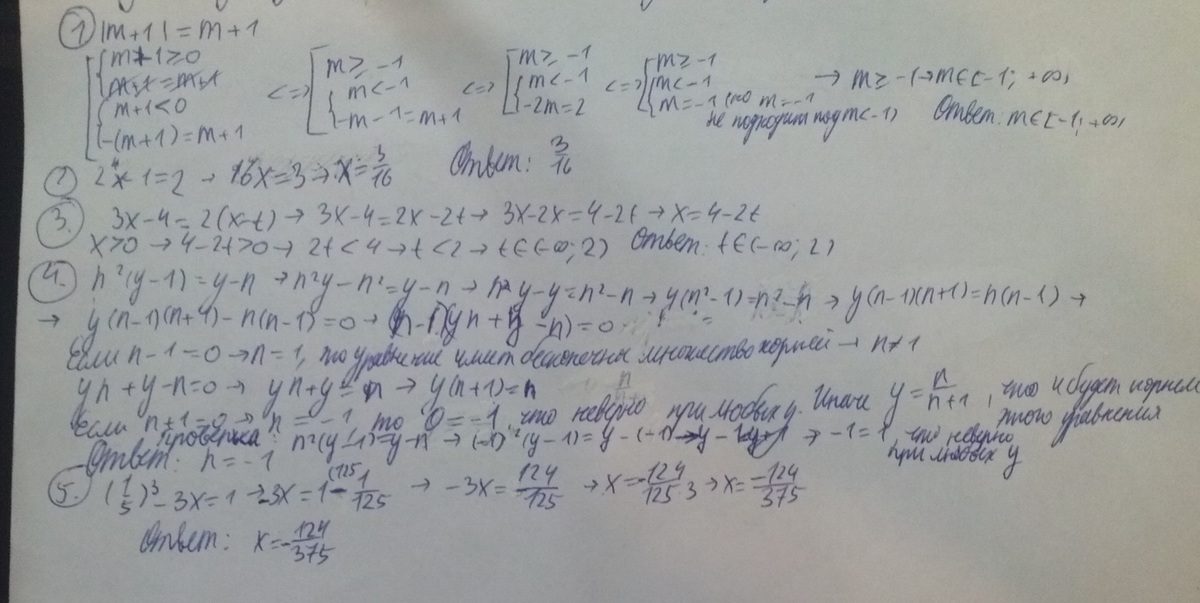 1 |m+1| = m+1
[ { m+1≥0 m+1=m+1 { m+1<0 -(m+1)=m+1 <=> [ m≥-1 { m<-1 -m-1=m+1 <=> [ m≥-1 { m<-1 -2m=2 <=> [ m≥-1 { m<-1 m=-1 (но m=-1 не подходит под m<-1) → m≥-1 → m∈[-1; +∞) Ответ: m∈[-1; +∞)
2 2⁴x-1=2 → 16x=3 → x=3/16 Ответ: 3/16
3. 3x-4=2(x-t) → 3x-4=2x-2t → 3x-2x=4-2t → x=4-2t
x>0 → 4-2t>0 → 2t<4 → t<2 → t∈(-∞; 2) Ответ: t∈(-∞; 2)
4. n²(y-1)=y-n → n²y-n²=y-n → n²y-y=n²-n → y(n²-1)=n²-n → y(n-1)(n+1)=n(n-1) →
→ y(n-1)(n+1)-n(n-1)=0 → (n-1)(yn+y-n)=0
Если n-1=0 → n=1, то уравнение имеет бесконечны множество корней → n≠1
yn+y-n=0 → yn+y=n → y(n+1)=n
Если n+1=0 → n=-1, то 0=-1, что неверно при любых y. Иначе y=n/(n+1), что и будет корнем этого уравнения
проверка: n²(y-1)=y-n → (-1)²(y-1)=y-(-1) → y-1=y+1 → -1=1, что неверно при любых y
Ответ: n=-1
5. (1/5)³-3x=1 → -3x=1-1/125 → -3x=124/125 → x=-124/125·3 → x=-124/375
Ответ: x=-124/375